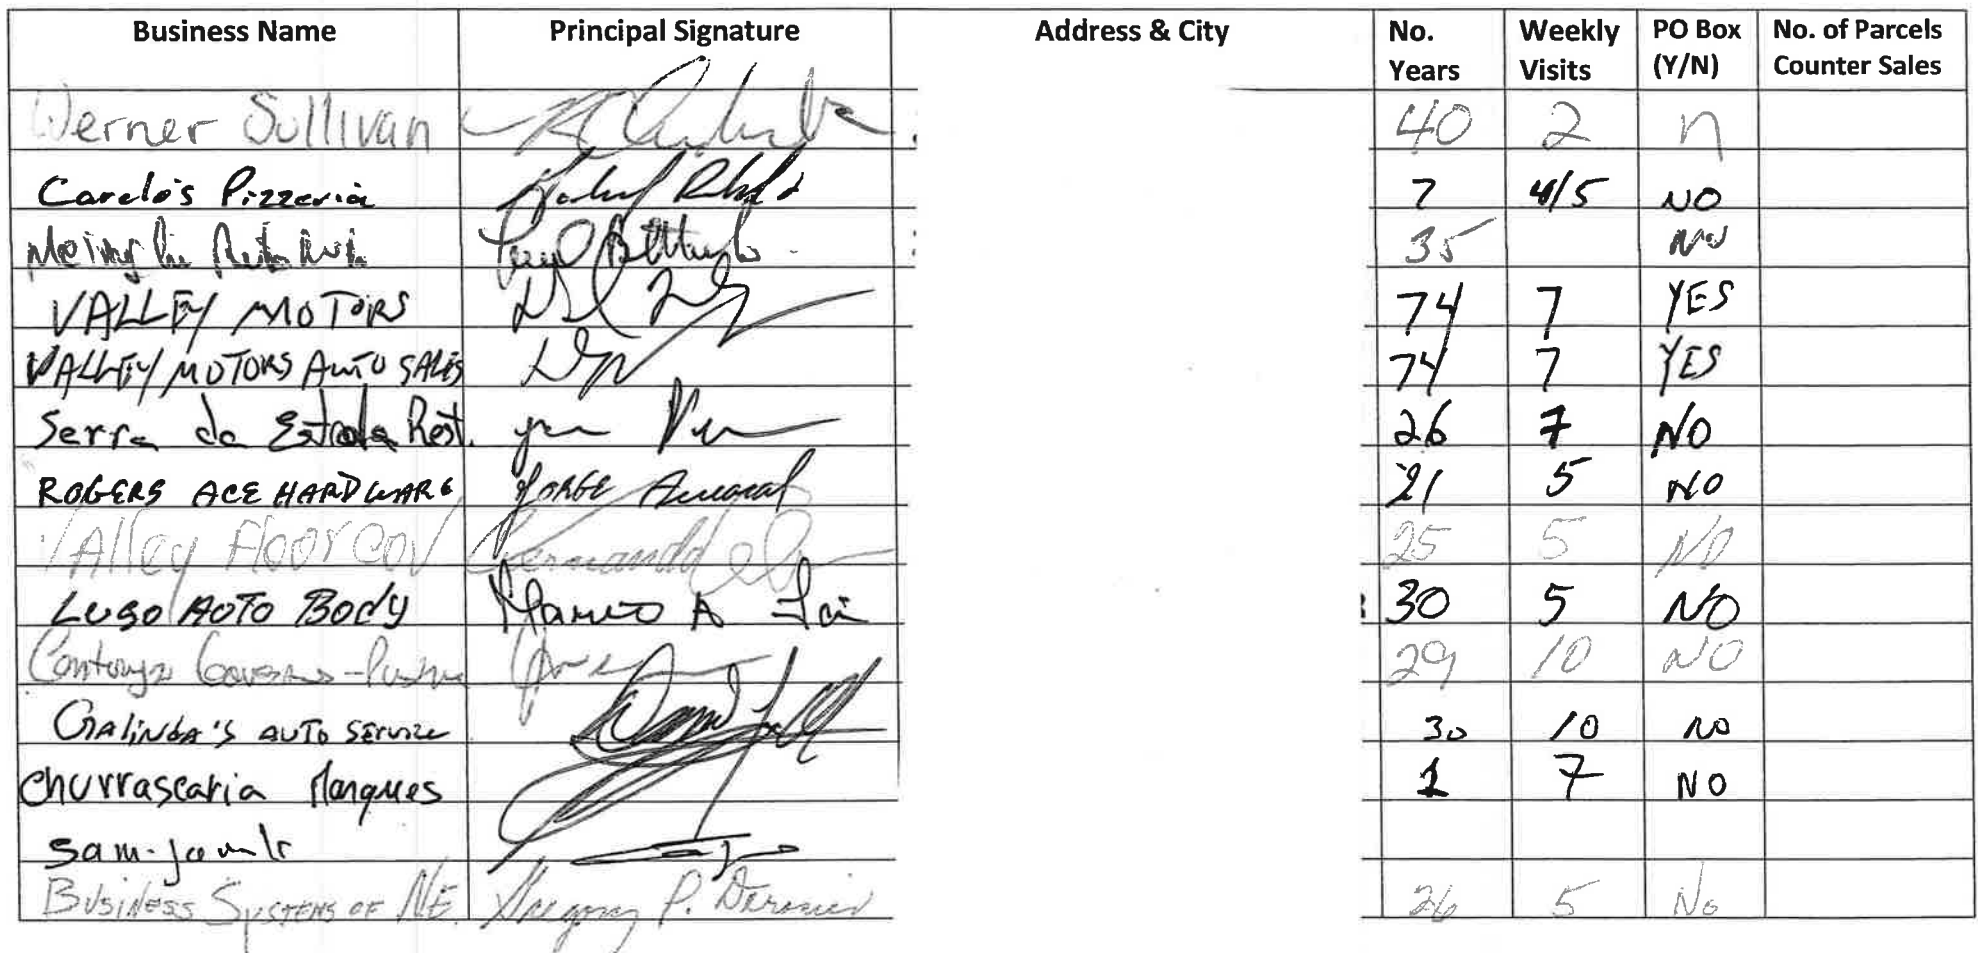 Business Name Principal Signature Address & City No. Years Weekly Visits PO Box (Y/N) No. of Parcels Counter Sales
Werner Sullivan 40 2 n
Carelo's Pizzeria 7 4/5 NO
35 No
VALLEY MOTORS 74 7 YES
VALLEY MOTORS AUTO SALES 74 7 YES
Serra da Estrela Rest. 26 7 NO
ROGERS ACE HARDWARE JORGE Amaral 21 5 NO
VAlley FloorCov Fernando 25 5 NO
LUSO AUTO BODY Marco A 30 5 NO
29 10 NO
GALINDA'S AUTO SERVICE 30 10 NO
Churrascaria Marques 1 7 NO
Sam
BUSINESS SYSTEMS OF NE. Gregory P. 26 5 No